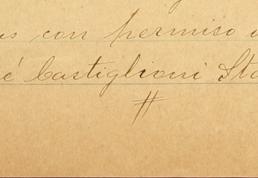 us con permiso d
é Castiglioni Sto
#